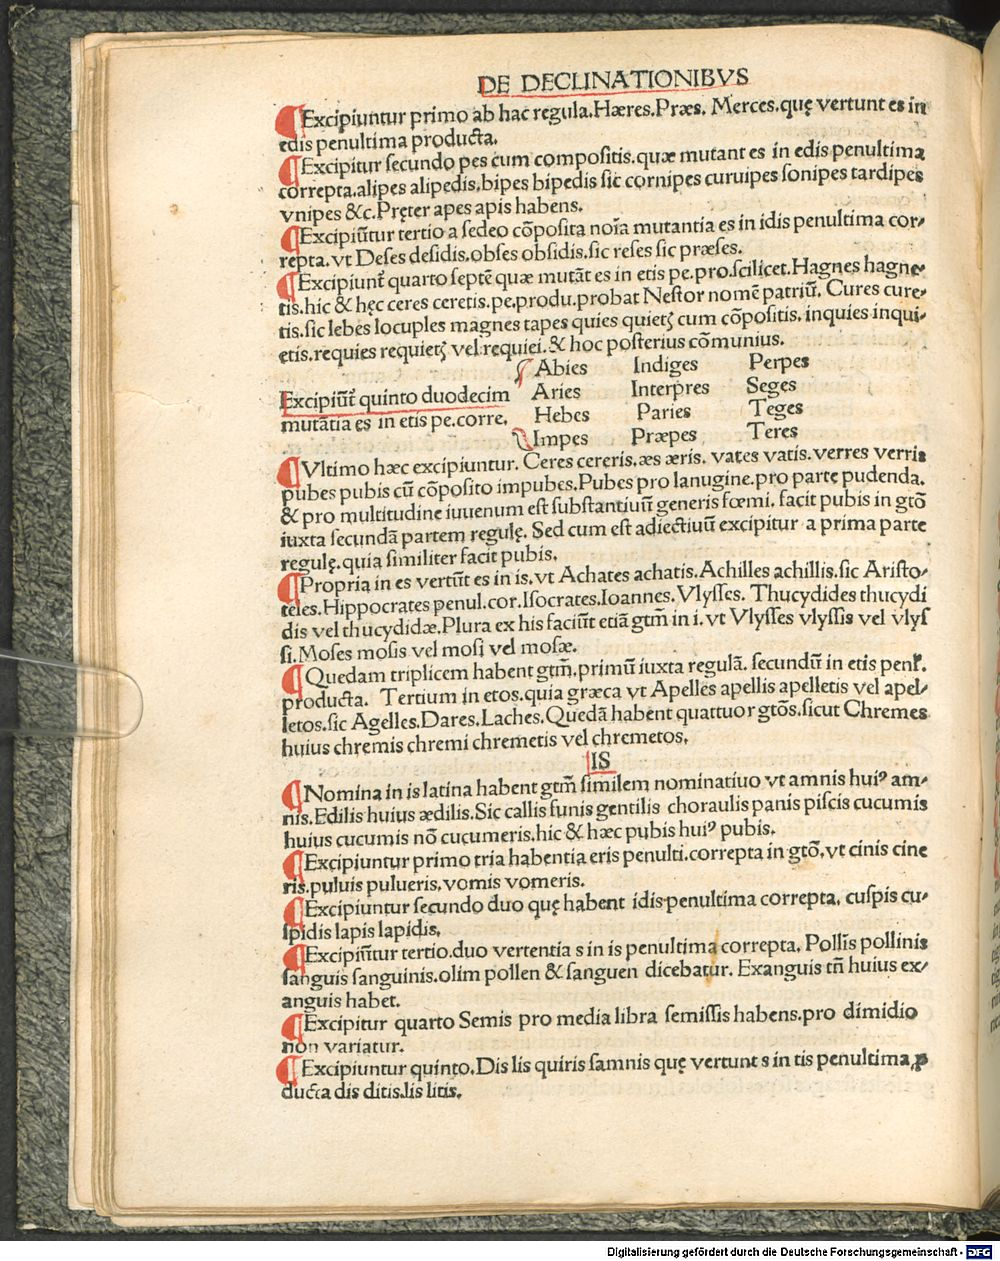 DE DECLINATIONIBVS
¶Excipiuntur primo ab hac regula.Hæres.Præs. Merces.quę vertunt es in
edis penultima producta.
¶Excipitur ſecundo pes cum compoſitis.quæ mutant es in edis penultima
correpta.alipes alipedis.bipes bipedis ſic cornipes curuipes ſonipes tardipes
vnipes &c.Pręter apes apis habens.
¶Excipiūtur tertio a ſedeo cōpoſita noīa mutantia es in idis penultima cor⸗
repta.vt Deſes deſidis.obſes obſidis.ſic reſes ſic præſes.
¶Excipiunt̄ quarto ſeptē quæ mutāt es in etis pe.pro.ſcilicet.Hagnes hagne⸗
tis.hic & hęc ceres ceretis.pe.produ.probat Neſtor nomē patriū. Cures cure⸗
tis.ſic lebes locuples magnes tapes quies quietꝭ cum cōpoſitis. inquies inqui⸗
etis.requies requietꝭ vel requiei.& hoc poſterius cōmunius.
Abies Indiges Perpes
Excipiūt̄ quinto duodecim Aries Interpres Seges
mutātia es in etis pe.corre. Hebes Paries Teges
Impes Præpes Teres
¶Vltimo hæc excipiuntur. Ceres cereris.æs æris. vates vatis. verres verris
pubes pubis cū cōpoſito impubes.Pubes pro lanugine.pro parte pudenda.
& pro multitudine iuuenum eſt ſubſtantiuū generis fœmi. facit pubis in gtō
iuxta ſecundā partem regulę. Sed cum eſt adiectiuū excipitur a prima parte
regulę.quia ſimiliter facit pubis.
¶Propria in es vertūt es in is.vt Achates achatis.Achilles achillis.ſic Ariſto⸗
teles.Hippocrates penul.cor.Iſocrates.Ioannes.Vlyſſes. Thucydides thucydi
dis vel thucydidæ.Plura ex his faciūt etiā gtm̄ in i.vt Vlyſſes vlyſſis vel vlyſ
ſi.Moſes moſis vel moſi vel moſæ.
¶Quedam triplicem habent gtm̄.primū iuxta regulā. ſecundū in etis penl̄.
producta. Tertium in etos.quia græca vt Apelles apellis apelletis vel apel⸗
letos.ſic Agelles.Dares.Laches.Quedā habent quattuor gtōs.ſicut Chremes
huius chremis chremi chremetis vel chremetos.
IS
¶Nomina in is latina habent gtm̄ ſimilem nominatiuo vt amnis huiꝰ am⸗
nis.Edilis huius ædilis.Sic callis funis gentilis choraulis panis piſcis cucumis
huius cucumis nō cucumeris.hic & hæc pubis huiꝰ pubis.
¶Excipiuntur primo tria habentia eris penulti.correpta in gtō.vt cinis cine
ris.puluis pulueris.vomis vomeris.
¶Excipiuntur ſecundo duo quę habent idis penultima correpta. cuſpis cu⸗
ſpidis lapis lapidis.
¶Excipiūtur tertio.duo vertentia s in is penultima correpta. Pollis pollinis
ſanguis ſanguinis.olim pollen & ſanguen dicebatur. Exanguis tn̄ huius ex⸗
anguis habet.
¶Excipitur quarto Semis pro media libra ſemiſſis habens.pro dimidio
non variatur.
¶Excipiuntur quinto.Dis lis quiris ſamnis quę vertunt s in tis penultima ꝓ
ducta dis ditis.lis litis.
Digitalisierung gefördert durch die Deutsche Forschungsgemeinschaft - DFG